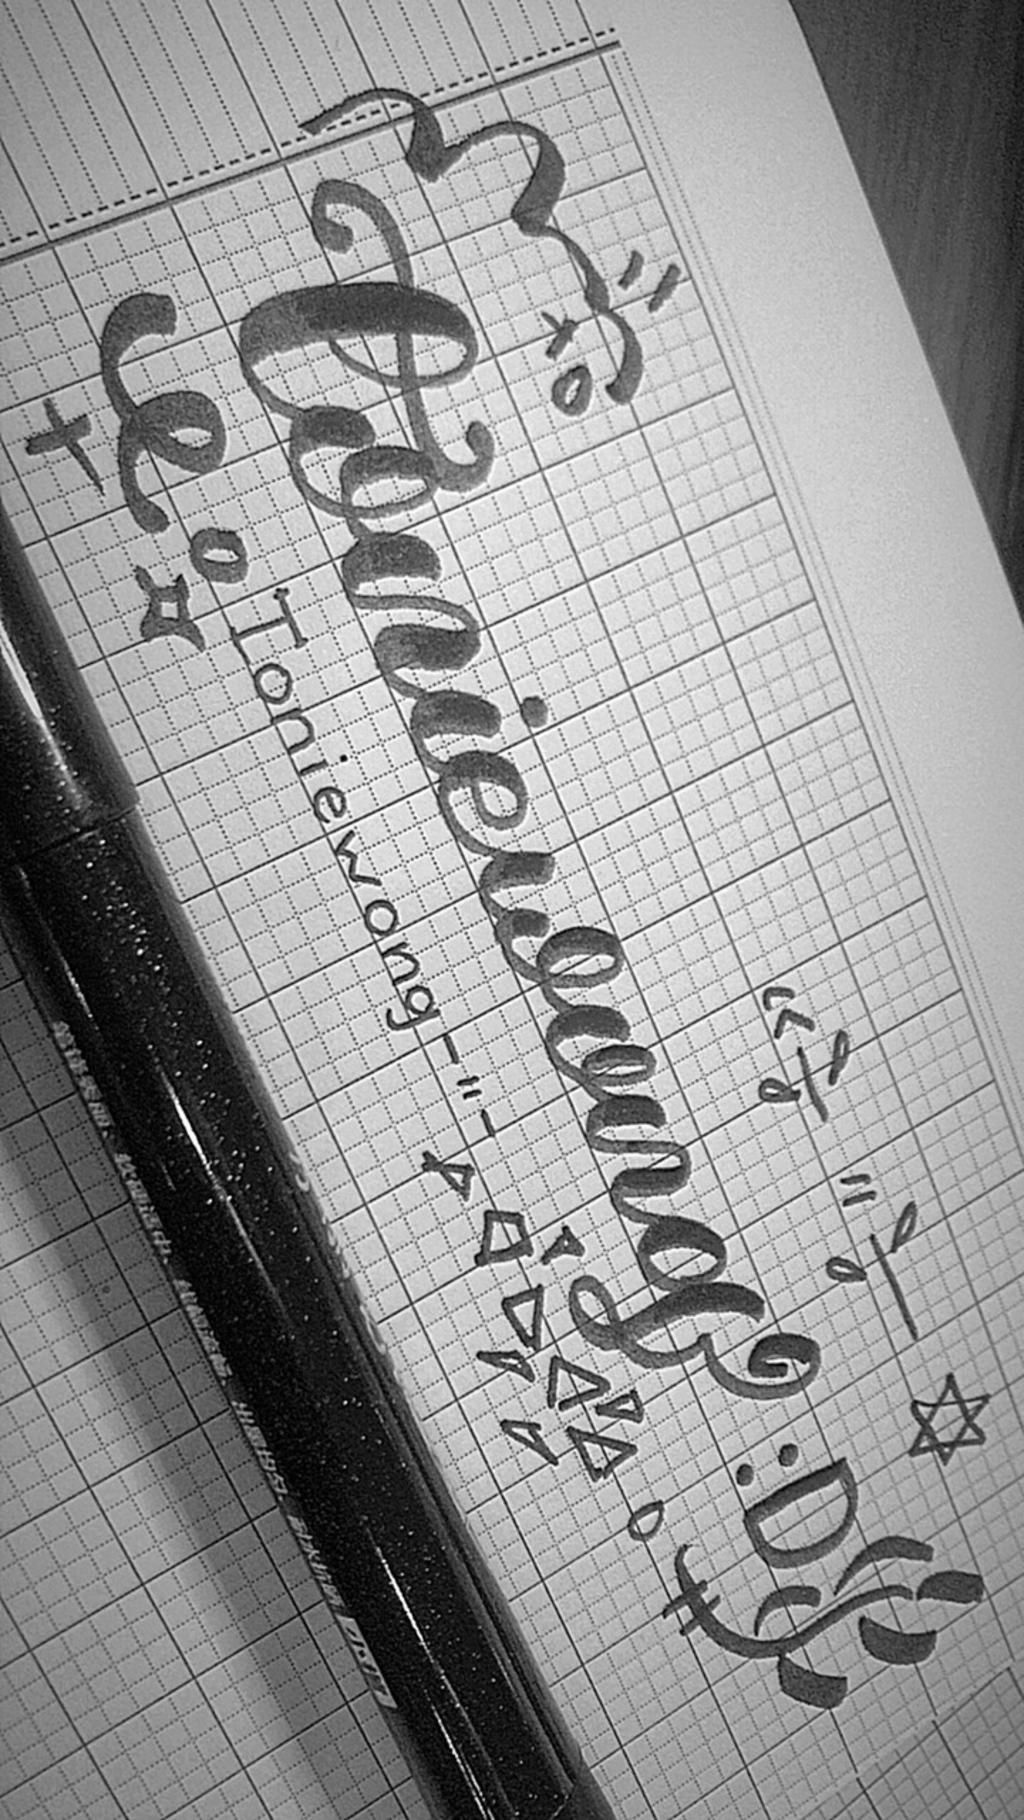 Ioniewong :D
Ioniewong -"-